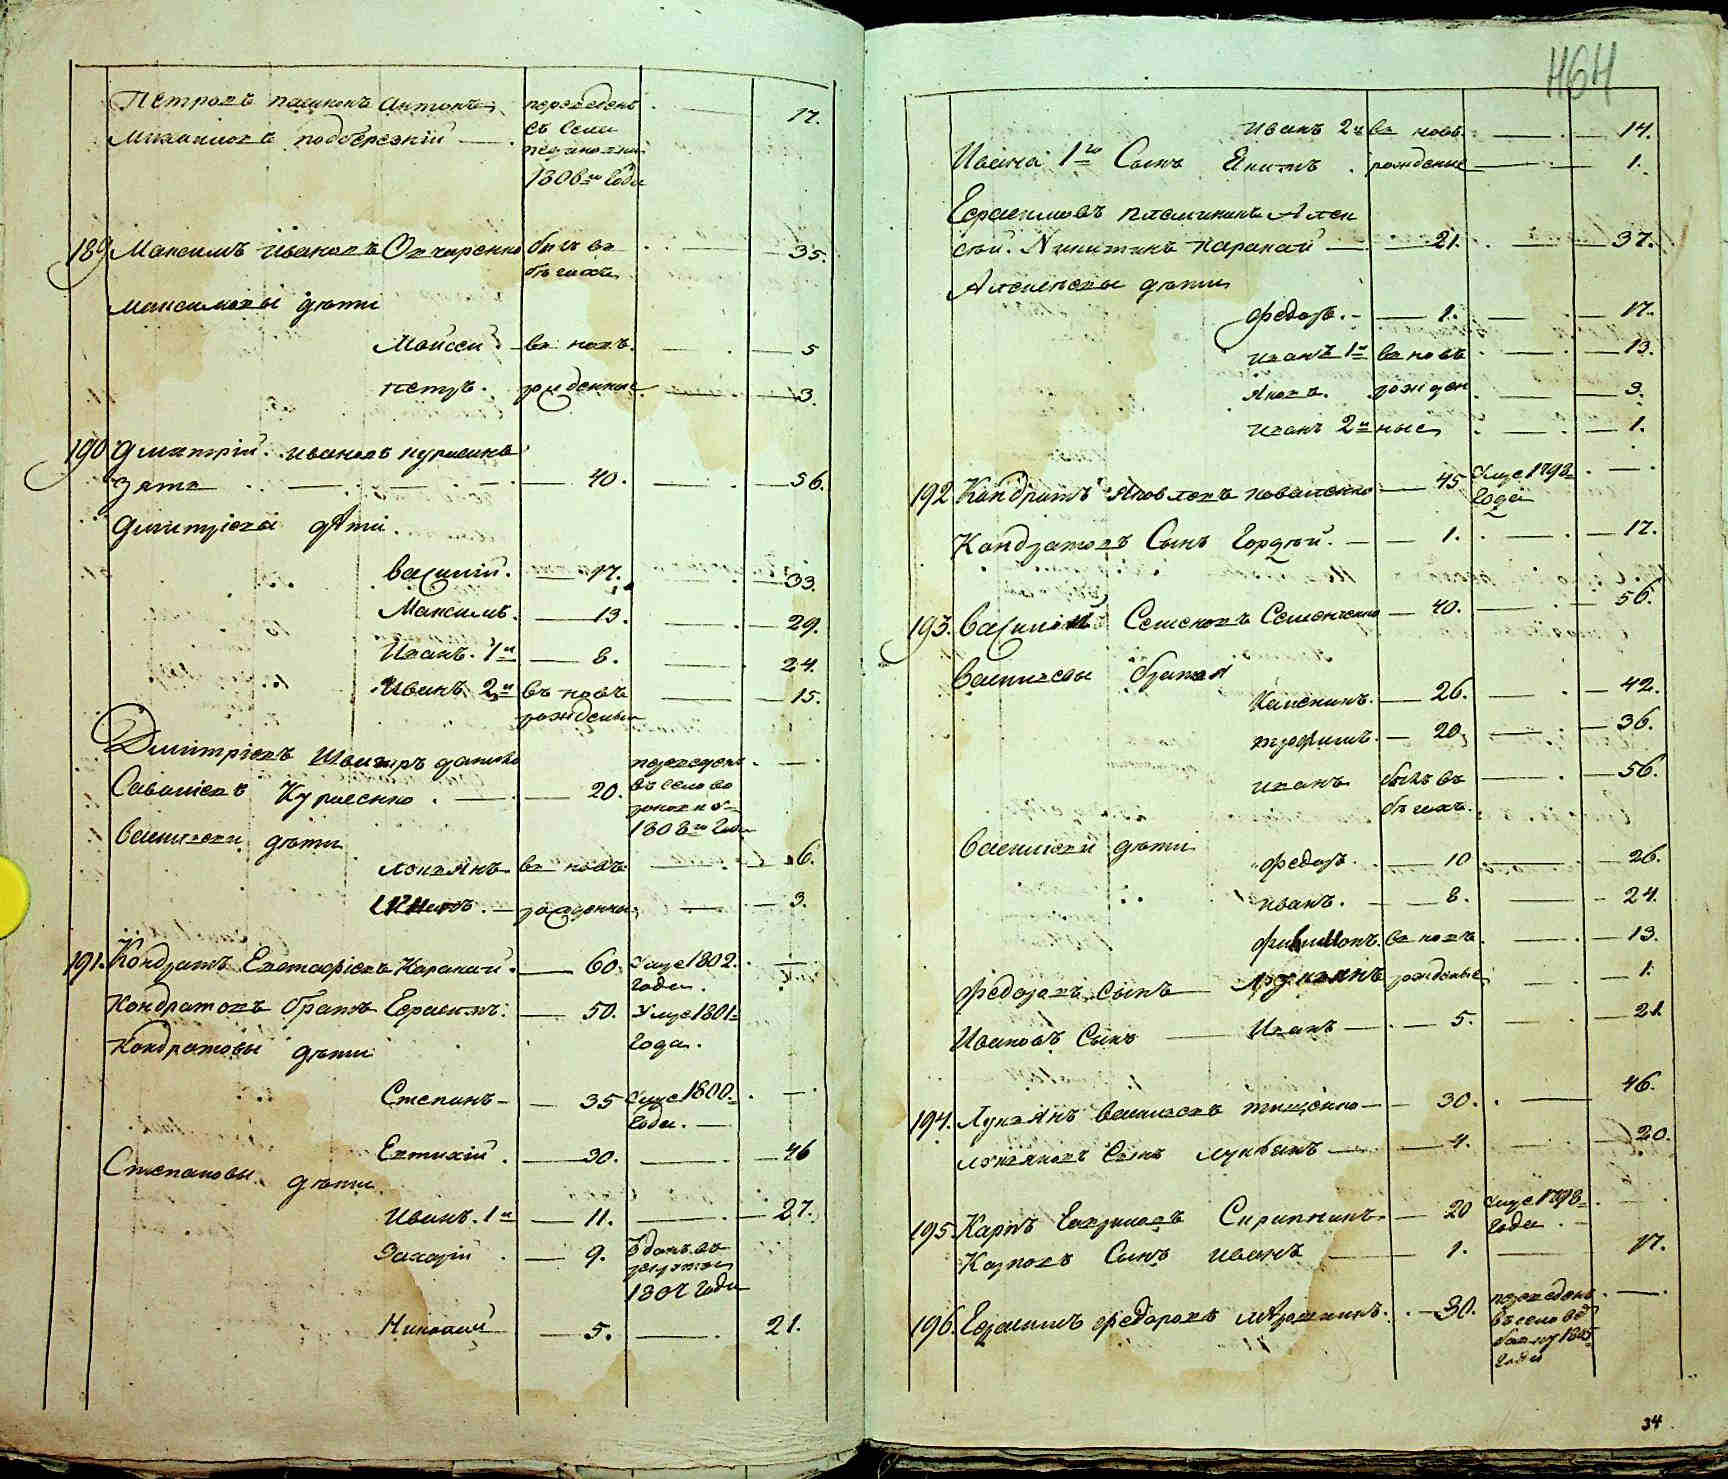 464
Петровъ пасынокъ Антонъ переведенъ 17.
Михаиловъ подберезкій съ села
1808го Года
189 Максимъ Ивановъ Овчаренко былъ въ 35.
бѣгахъ
Максимовы дѣти
Моисей въ новъ. 5
Петръ. рожденные 3.
190 Дмитрій Ивановъ
зятъ 40. 56.
Дмитріевы дѣти
Василій. 17. 33.
Максимъ. 13. 29.
Иванъ. 1й 8. 24.
Иванъ 2й въ новъ 15.
рожденный
Дмитріевъ Швагиръ данило переведенъ
Саваніевъ Курасенко. 20. въ село
1808го Года
Васильевы дѣти
Лукьянъ въ новъ 6.
рожденны 3.
191. Кондратъ Евстафіевъ Каракай. 60. Умре 1802.
года.
Кондратовъ братъ Герасимъ. 50. Умре 1801
Года.
Кондратовы дѣти
Степанъ 35 Умре 1800.
Года.
Евтихій. 30. 46
Степановы дѣти
Иванъ. 1й 11. 27.
Захарій 9. Отданъ въ
рекруты
1807 Года
Николай 5. 21.
Иванъ 2й въ новъ 14.
Ивана 1го Сынъ Екимъ рожденные 1.
Герасимовъ племянникъ Алек
сѣй Никитинъ Каракай 21. 37.
Алексѣевы дѣти
Федоръ. 1. 17.
Иванъ 1й въ новъ 13.
Яковъ. рожден 3.
Иванъ 2й ные 1.
192 Кондратъ Яковлевъ коваленко 45 Умре 1798
Года
Кондратовъ Сынъ Гордѣй. 1. 17.
193. Василій Семеновъ Семенченко 40. 56.
Васильевы братья
Каленикъ. 26. 42.
Трофимъ. 20, 36.
Иванъ былъ въ 56.
бѣгахъ.
Васильевы дѣти
Федоръ. 10 26.
Иванъ. 8. 24.
Филимонъ. въ новъ 13.
Федоровъ Сынъ Лукьянъ рожденные 1.
Ивановъ Сынъ Иванъ 5. 21.
194. Лукьянъ Васильевъ Тищенко 30. 46.
Лукьяновъ Сынъ Лукьянъ 4. 20.
195. Карпъ Гавриловъ Скрипникъ. 20 Умре 1798
Года
Карповъ Сынъ Иванъ 1. 17.
196. Герасимъ Федоровъ 30. переведенъ
въ село
1805
Года
34